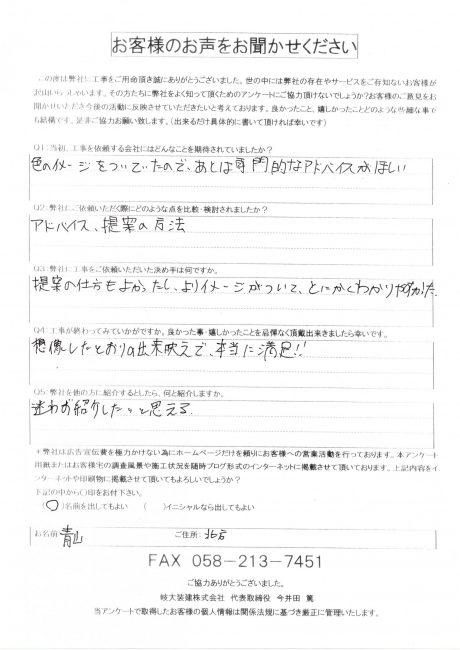 お客様のお声をお聞かせください
この度は弊社に工事をご用命頂き誠にありがとうございました。世の中には弊社の存在やサービスをご存知ないお客様が
沢山いらっしゃいます。その方たちに弊社をよく知って頂くためのアンケートにご協力頂けないでしょうか?お客様のご意見をお
聞かせいただき今後の活動に反映させていただきたいと考えております。良かったこと、嬉しかったことどのような些細な事で
も結構です。是非ご協力お願い致します。(出来るだけ具体的に書いて頂ければ幸いです)
Q1:当初、工事を依頼する会社にはどんなことを期待されていましたか?
色のイメージをついていたので、あとは専門的なアドバイスがほしい
Q2:弊社にご依頼いただく際にどのような点を比較・検討されましたか?
アドバイス、提案の方法
Q3:弊社に工事をご依頼いただいた決め手は何ですか。
提案の仕方もよかったし、よりイメージがついて、とにかくわかりやすかった
Q4:工事が終わってみていかがですか。良かった事・嬉しかったことを忌憚なく頂戴出来きましたら幸いです。
想像したとおりの出来映えで、本当に満足!!
Q5:弊社を他の方に紹介するとしたら、何と紹介しますか。
迷わず紹介したいと思える
*弊社は広告宣伝費を極力かけない為にホームページだけを頼りにお客様への営業活動を行っております。本アンケート
用紙またはお客様宅の調査風景や施工状況を随時ブログ形式のインターネットに掲載させて頂いております。上記内容をイ
ンターネットや印刷物に掲載させて頂いてもよろしいでしょうか?
下記の中から○印をお付下さい。
(○)名前を出してもよい ( )イニシャルなら出してもよい
お名前 青山 ご住所:北方
FAX 058-213-7451
ご協力ありがとうございました。
岐大装建株式会社 代表取締役 今井田 篤
当アンケートで取得したお客様の個人情報は関係法規に基づき厳正に管理いたします。